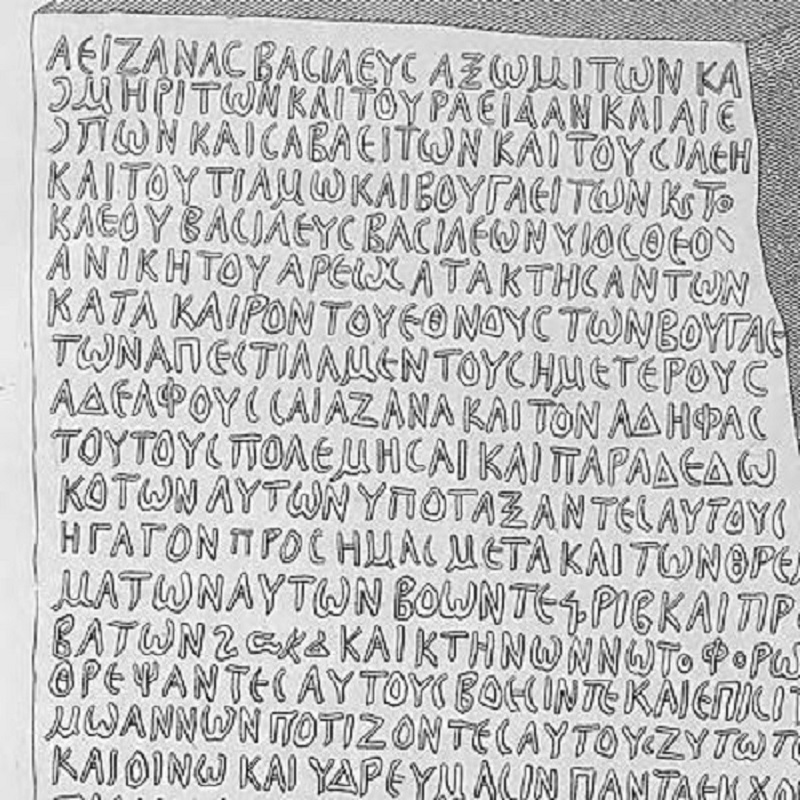 ΑΕΙΖΑΝΑС ΒΑСΙΛΕΥС ΑΞΩΜΙΤΩΝ ΚΑ
ΟΜΗΡΙΤΩΝ ΚΑΙ ΤΟΥ ΡΑΕΙΔΑΝ ΚΑΙ ΑΙΕ
ΟΠΩΝ ΚΑΙ СΑΒΑΕΙΤΩΝ ΚΑΙ ΤΟΥ СΙΛΕΗ
ΚΑΙ ΤΟΥ ΤΙΑΜΩ ΚΑΙ ΒΟΥΓΑΕΙΤΩΝ Κς ΤΟ
ΚΑΕΟΥ ΒΑСΙΛΕΥС ΒΑСΙΛΕΩΝ ΥΙΟС ΘΕΟ
ΑΝΙΚΗΤΟΥ ΑΡΕΩС ΑΤΑΚΤΗСΑΝΤΩΝ
ΚΑΤΑ ΚΑΙΡΟΝ ΤΟΥ ΕΘΝΟΥС ΤΩΝ ΒΟΥΓΑΕ
ΤΩΝ ΑΠΕСΤΙΛΑΜΕΝ ΤΟΥС ΗΜΕΤΕΡΟΥС
ΑΔΕΛΦΟΥС СΑΙΑΖΑΝΑ ΚΑΙ ΤΟΝ ΑΔΗΦΑС
ΤΟΥΤΟΥС ΠΟΛΕΜΗСΑΙ ΚΑΙ ΠΑΡΑΔΕΔΩ
ΚΟΤΩΝ ΑΥΤΩΝ ΥΠΟΤΑΞΑΝΤΕС ΑΥΤΟΥС
ΗΓΑΓΟΝ ΠΡΟС ΗΜΑС ΜΕΤΑ ΚΑΙ ΤΩΝ ΘΡΕ
ΜΑΤΩΝ ΑΥΤΩΝ ΒΟΩΝΤΕ ϛΡΙΒ ΚΑΙ ΠΡ
ΒΑΤΩΝ ΚΑΙ ΚΤΗΝΩΝ ΝΩΤΟΦΟΡΩ
ΘΡΕΨΑΝΤΕС ΑΥΤΟΥС ΒΟΕСΙΝ ΤΕ ΚΑΙ ΕΠΙСΙΤ
ΜΩ ΑΝΝΩΝ ΠΟΤΙΖΟΝΤΕС ΑΥΤΟΥС ΖΥΤΩ ΤΕ
ΚΑΙ ΟΙΝΩ ΚΑΙ ΥΔΡΕΥΜΑСΙΝ ΠΑΝΤΑ ΕΙС ΧΟ